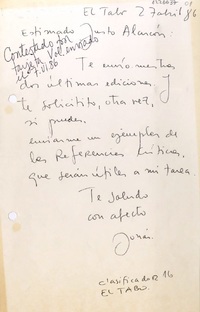 El Tabo 2 Abril 86
Estimado Justo Alarcón:
Contestado con
tarjeta Valenzuela
Te envío nuestras
dos últimas ediciones. Y
te solicitito, otra vez,
si puedes
enviarme un ejemplar de
las Referencias Críticas,
que serán útiles a mi tarea.
Te saludo
con afecto
Jonás.
Clasificador 14
EL TABO.